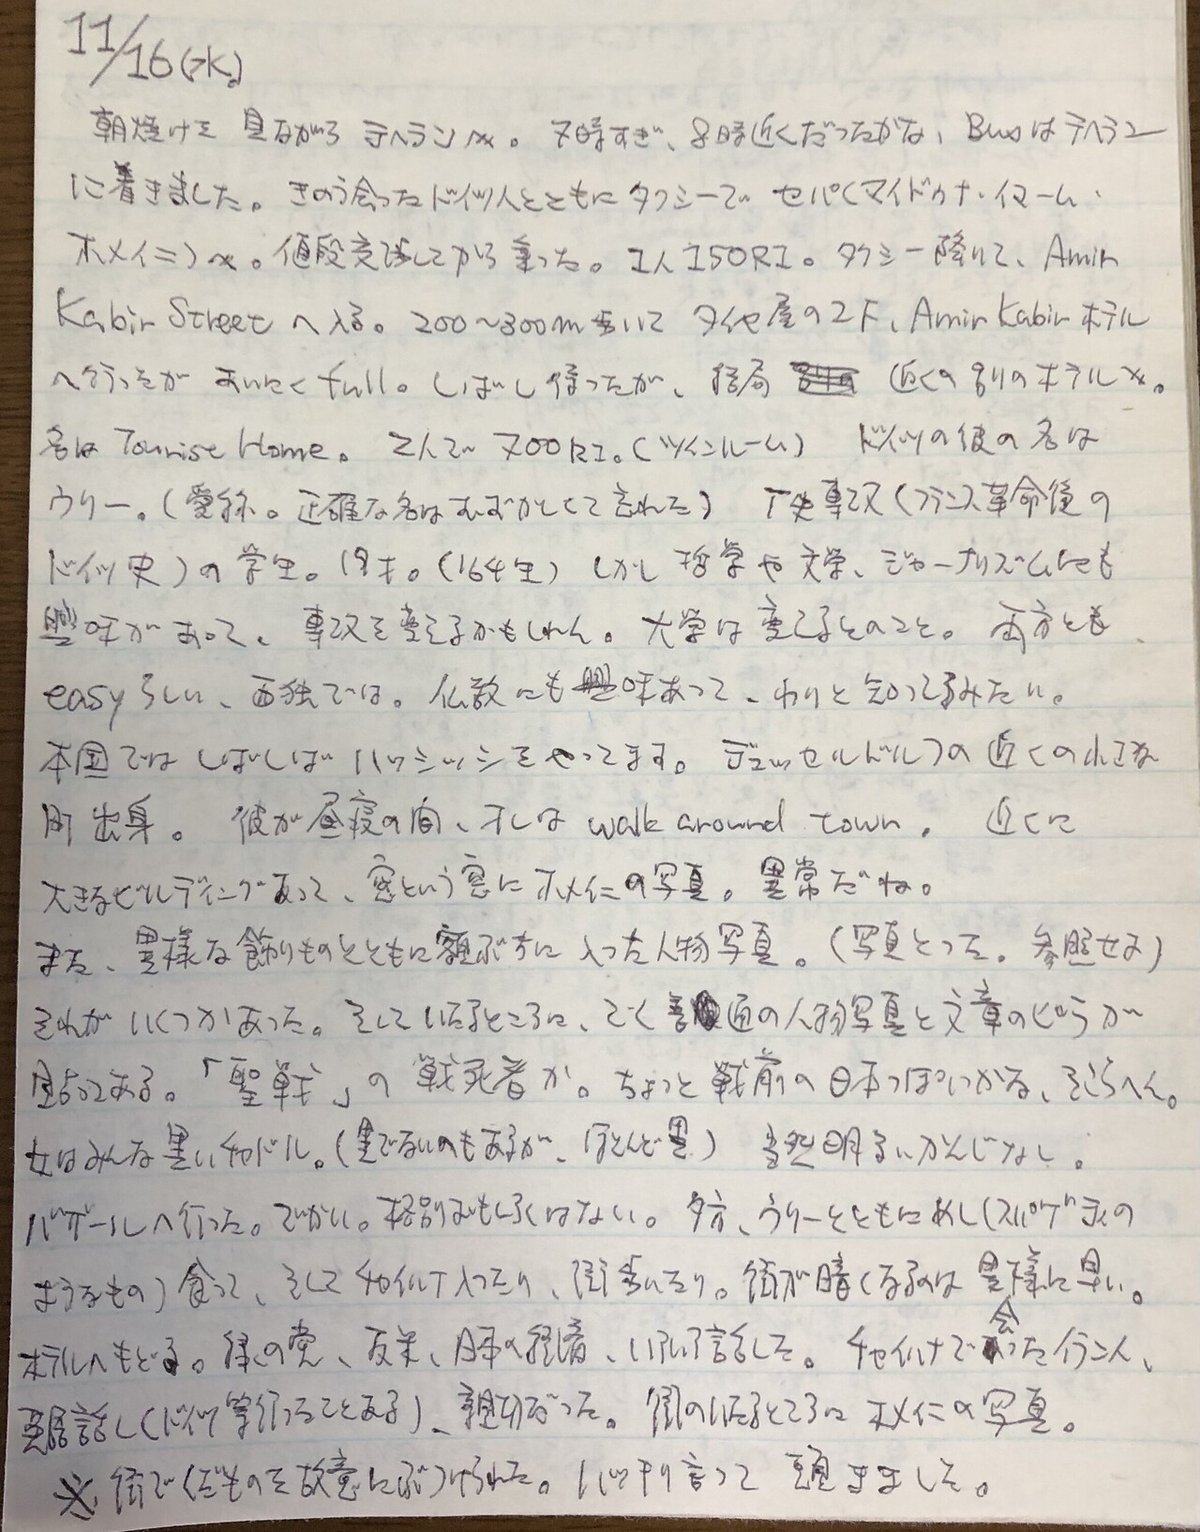 11/16(水)
朝焼けを見ながらテヘランへ。7時すぎ、8時近くだったかな、Busはテヘラン
に着きました。きのう会ったドイツ人とともにタクシーで セパ(マイドゥナ・イマーム・
ホメイニ)へ。値段交渉してから乗った。1人150RI。タクシー降りて、Amir
Kabir Streetへ入る。200〜300m歩いて タイヤ屋の2F、Amir Kabirホテル
へ行ったが あいにくfull。しばし待ったが、結局 近くの別のホテルへ。
名はTourist Home。2人で700RI。(ツインルーム) ドイツの彼の名は
ウリー。(愛称。正確な名はむずかしくて忘れた) 歴史専攻(フランス革命後の
ドイツ史)の学生。19才。('64生) しかし哲学や文学、ジャーナリズムにも
興味があって、専攻を変えるかもしれん。大学は変えるとのこと。両方とも
easyらしい、西独では。仏教にも興味あって、わりと知ってるみたい。
本国ではしばしばハッシッシをやってます。デュッセルドルフの近くの小さな
町出身。彼が昼寝の間、オレは walk around town. 近くに
大きなビルディングあって、窓という窓にホメイニの写真。異常だね。
また、異様な飾りものとともに額ぶちに入った人物写真。(写真とった。参照せよ)
それがいくつかあった。そしていたるところに、ごく最近の人物写真と文章のビラが
貼ってある。「聖戦」の戦死者か。ちょっと戦前の日本っぽいかな、そこらへん。
女はみんな黒いチャドル。(黒でないのもあるが、ほとんど黒) 当然明るいかんじなし。
バザールへ行った。でかい。格別おもしろくはない。夕方、ウリーとともにめし(スパゲティの
ようなもの)食って、そしてチャイハナ入ったり、街歩いたり。街が暗くなるのは異様に早い。
ホテルへもどる。緑の党、反米、日本の経済、いろいろ話した。チャイハナで会ったイラン人、
英語話し(ドイツ等行ったことある)、親切だった。街のいたるところにホメイニの写真。
※街でくだものを故意にぶつけられた。バッチリ言って 頭きました。